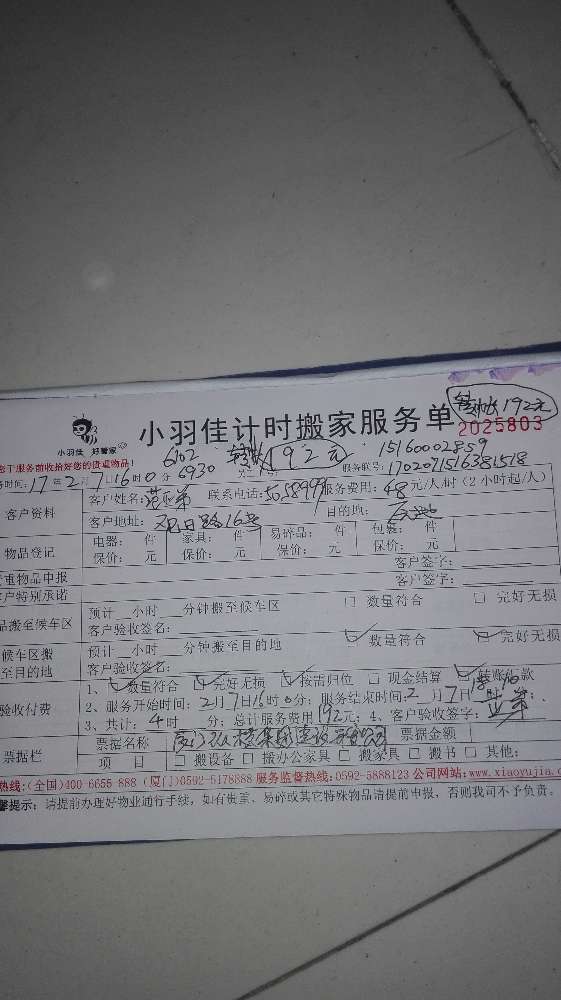 小羽佳 好管家
小羽佳计时搬家服务单
转账192元
2025803
您于服务前收拾好您的贵重物品！
6102
6930
转账192元
15160002859
服务联号：1702071516381518
时间：17年2月7日16时0分
客户资料
客户姓名： 联系电话： 服务费用：48元/人/时（2小时起/人）
客户地址： 目的地：
物品登记
电器： 件 家具： 件 易碎品： 件 包裹： 件
保价： 元 保价： 元 保价： 元 保价： 元
贵重物品申报 客户签字：
客户特别承诺 客户签字：
品搬至候车区
预计__小时__分钟搬至候车区 数量符合 完好无损
客户验收签名：
候车区搬至目的地
预计__小时__分钟搬至目的地 数量符合 完好无损
客户验收签名：
验收付费
1、数量符合 完好无损 按需归位 现金结算 转账汇款
2、服务开始时间：2月7日16时0分；服务结束时间：2月7日
3、共计：4时 分；总计服务费用192元；4、客户验收签字：
票据栏
票据名称 票据金额
项 目 搬设备 搬办公家具 搬家具 搬书 其他：
热线：(全国)400-6655-888 (厦门)0592-5178888 服务监督热线：0592-5888123 公司网站：www.xiaoyujia.c
馨提示：请提前办理好物业通行手续，如有贵重、易碎或其它特殊物品请提前申报，否则我司不予负责。